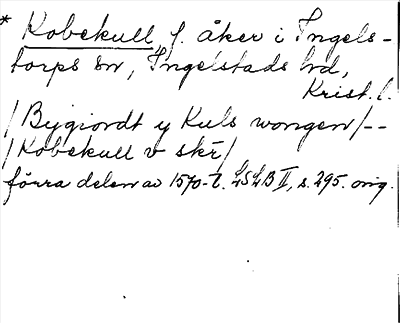 * Kobekull f. åker i Ingels-
torps sn, Ingelstads hd,
Krist. l.
/Bygiordt y Kuls wongen/--
/Kobekull v skr/
förra delen av 1570-t. LSLB II, s. 295. orig.